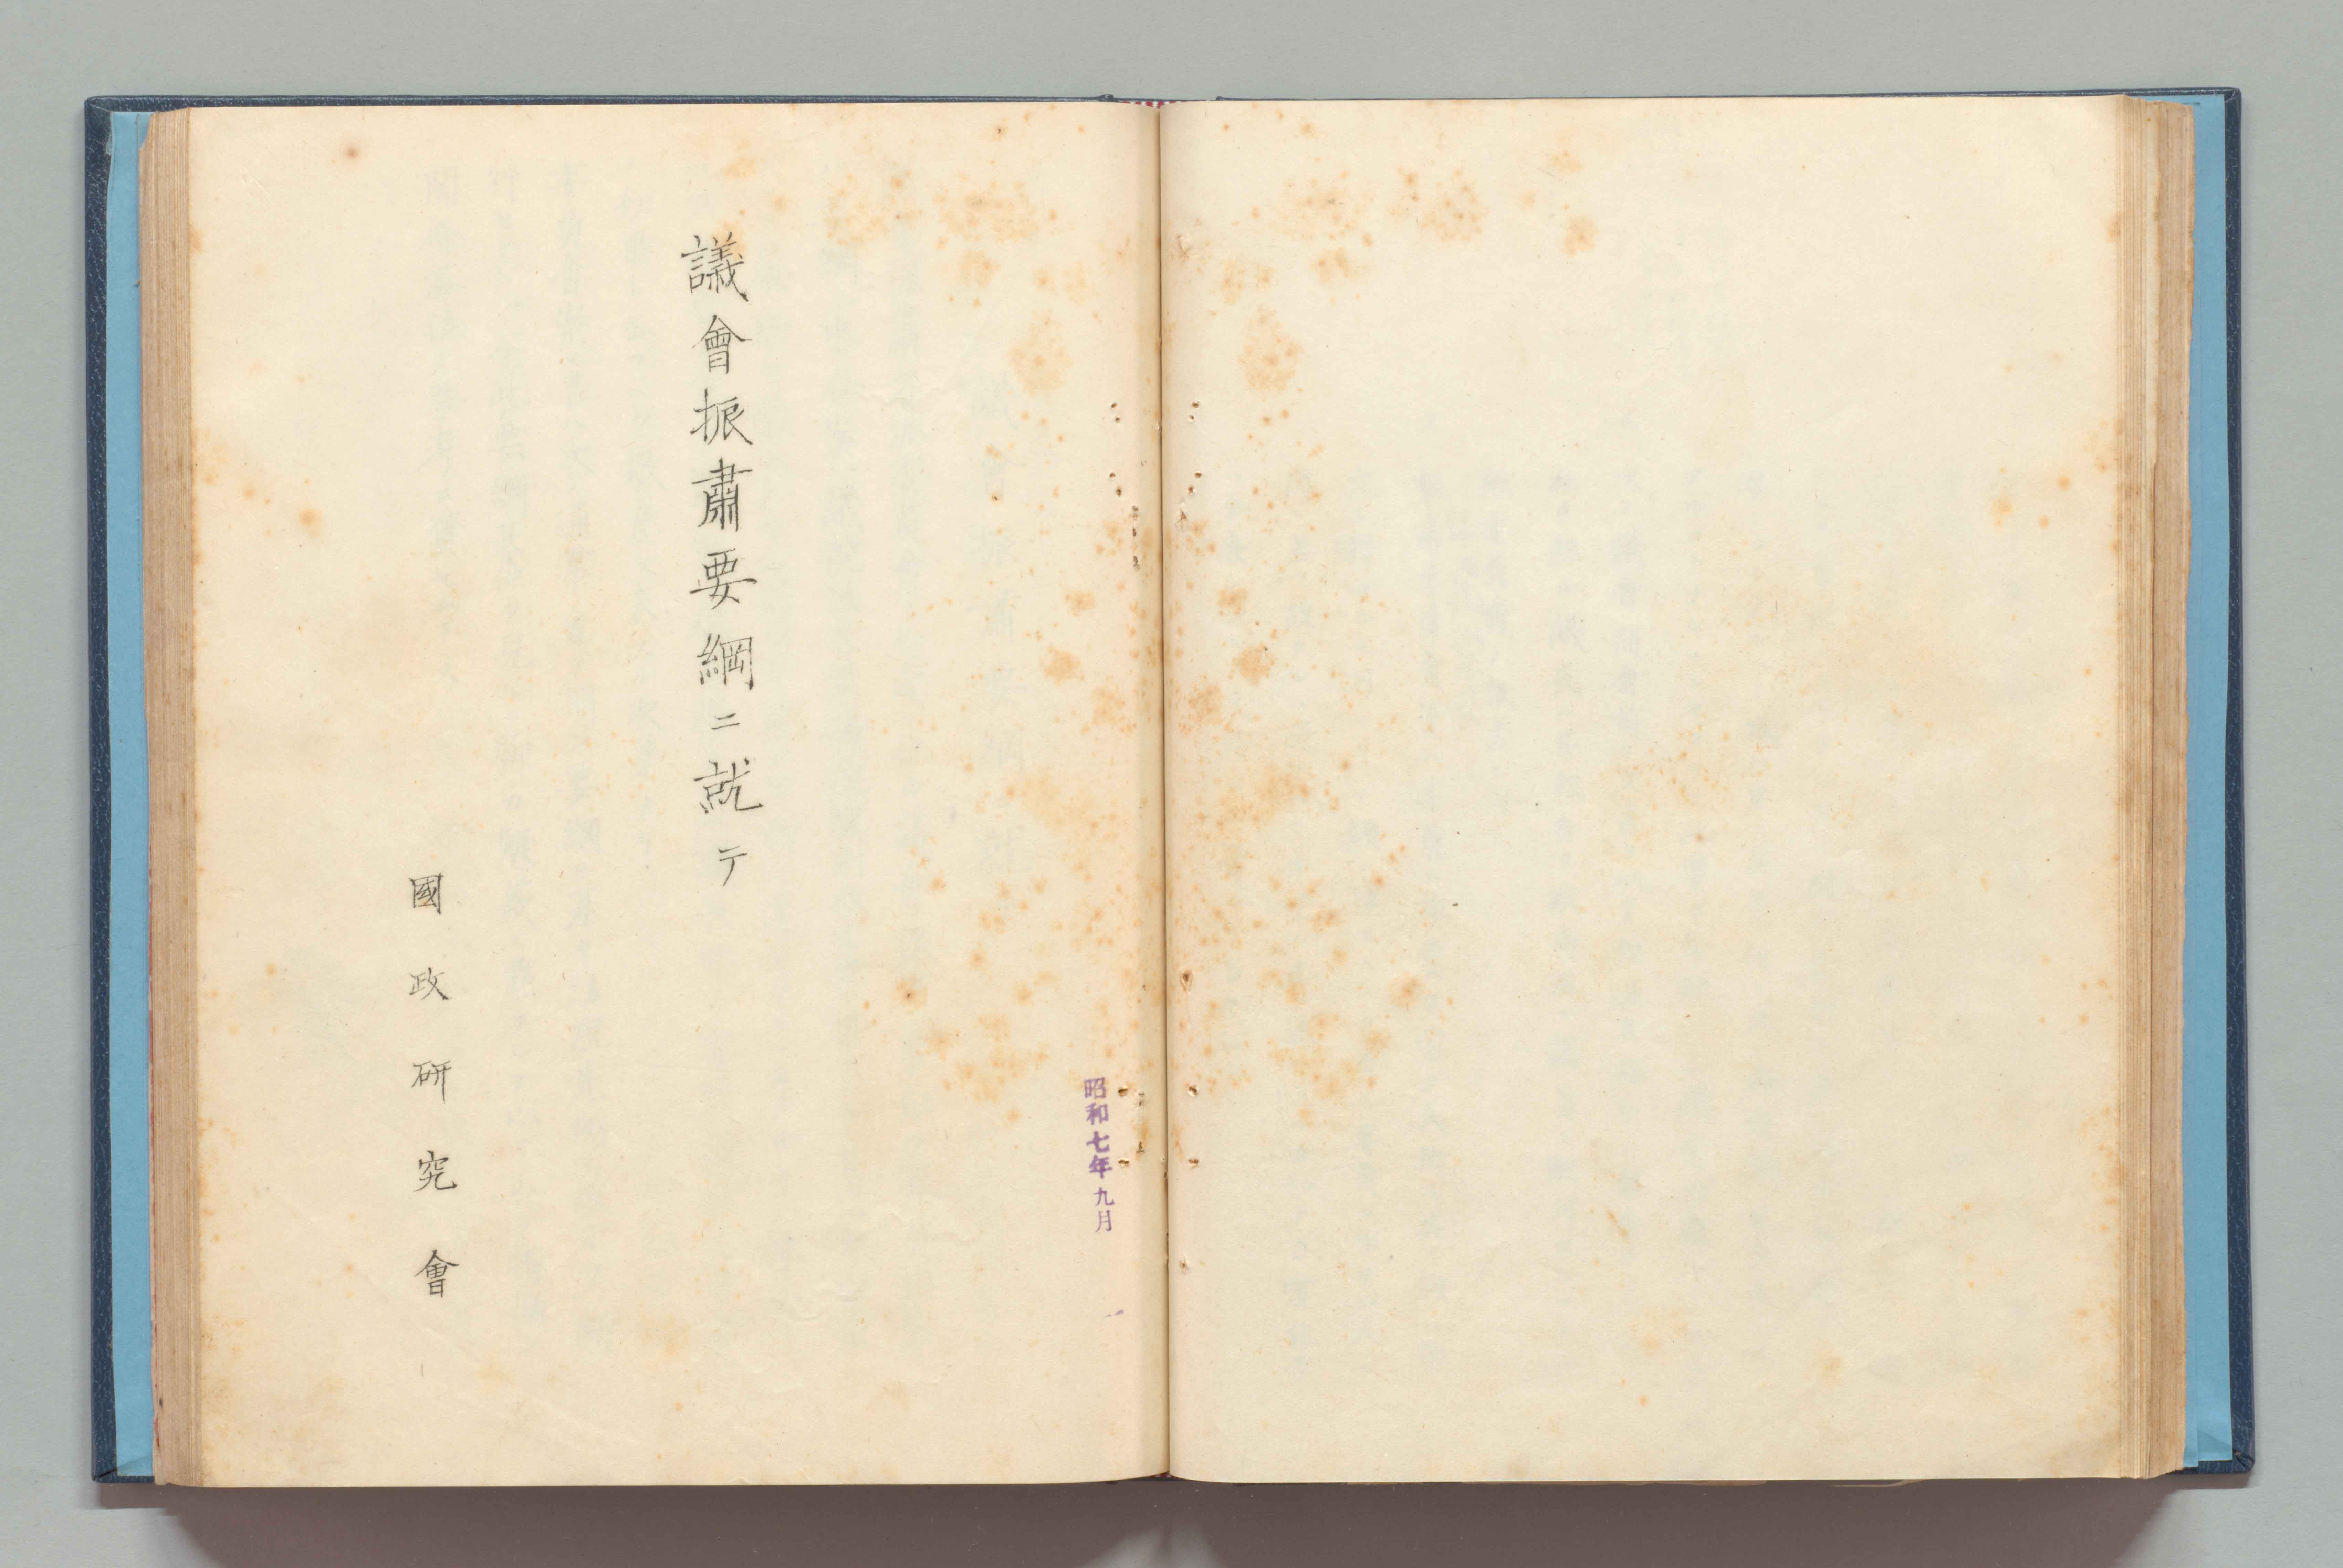 昭和七年九月
議會振肅要綱ニ就テ
國政研究會